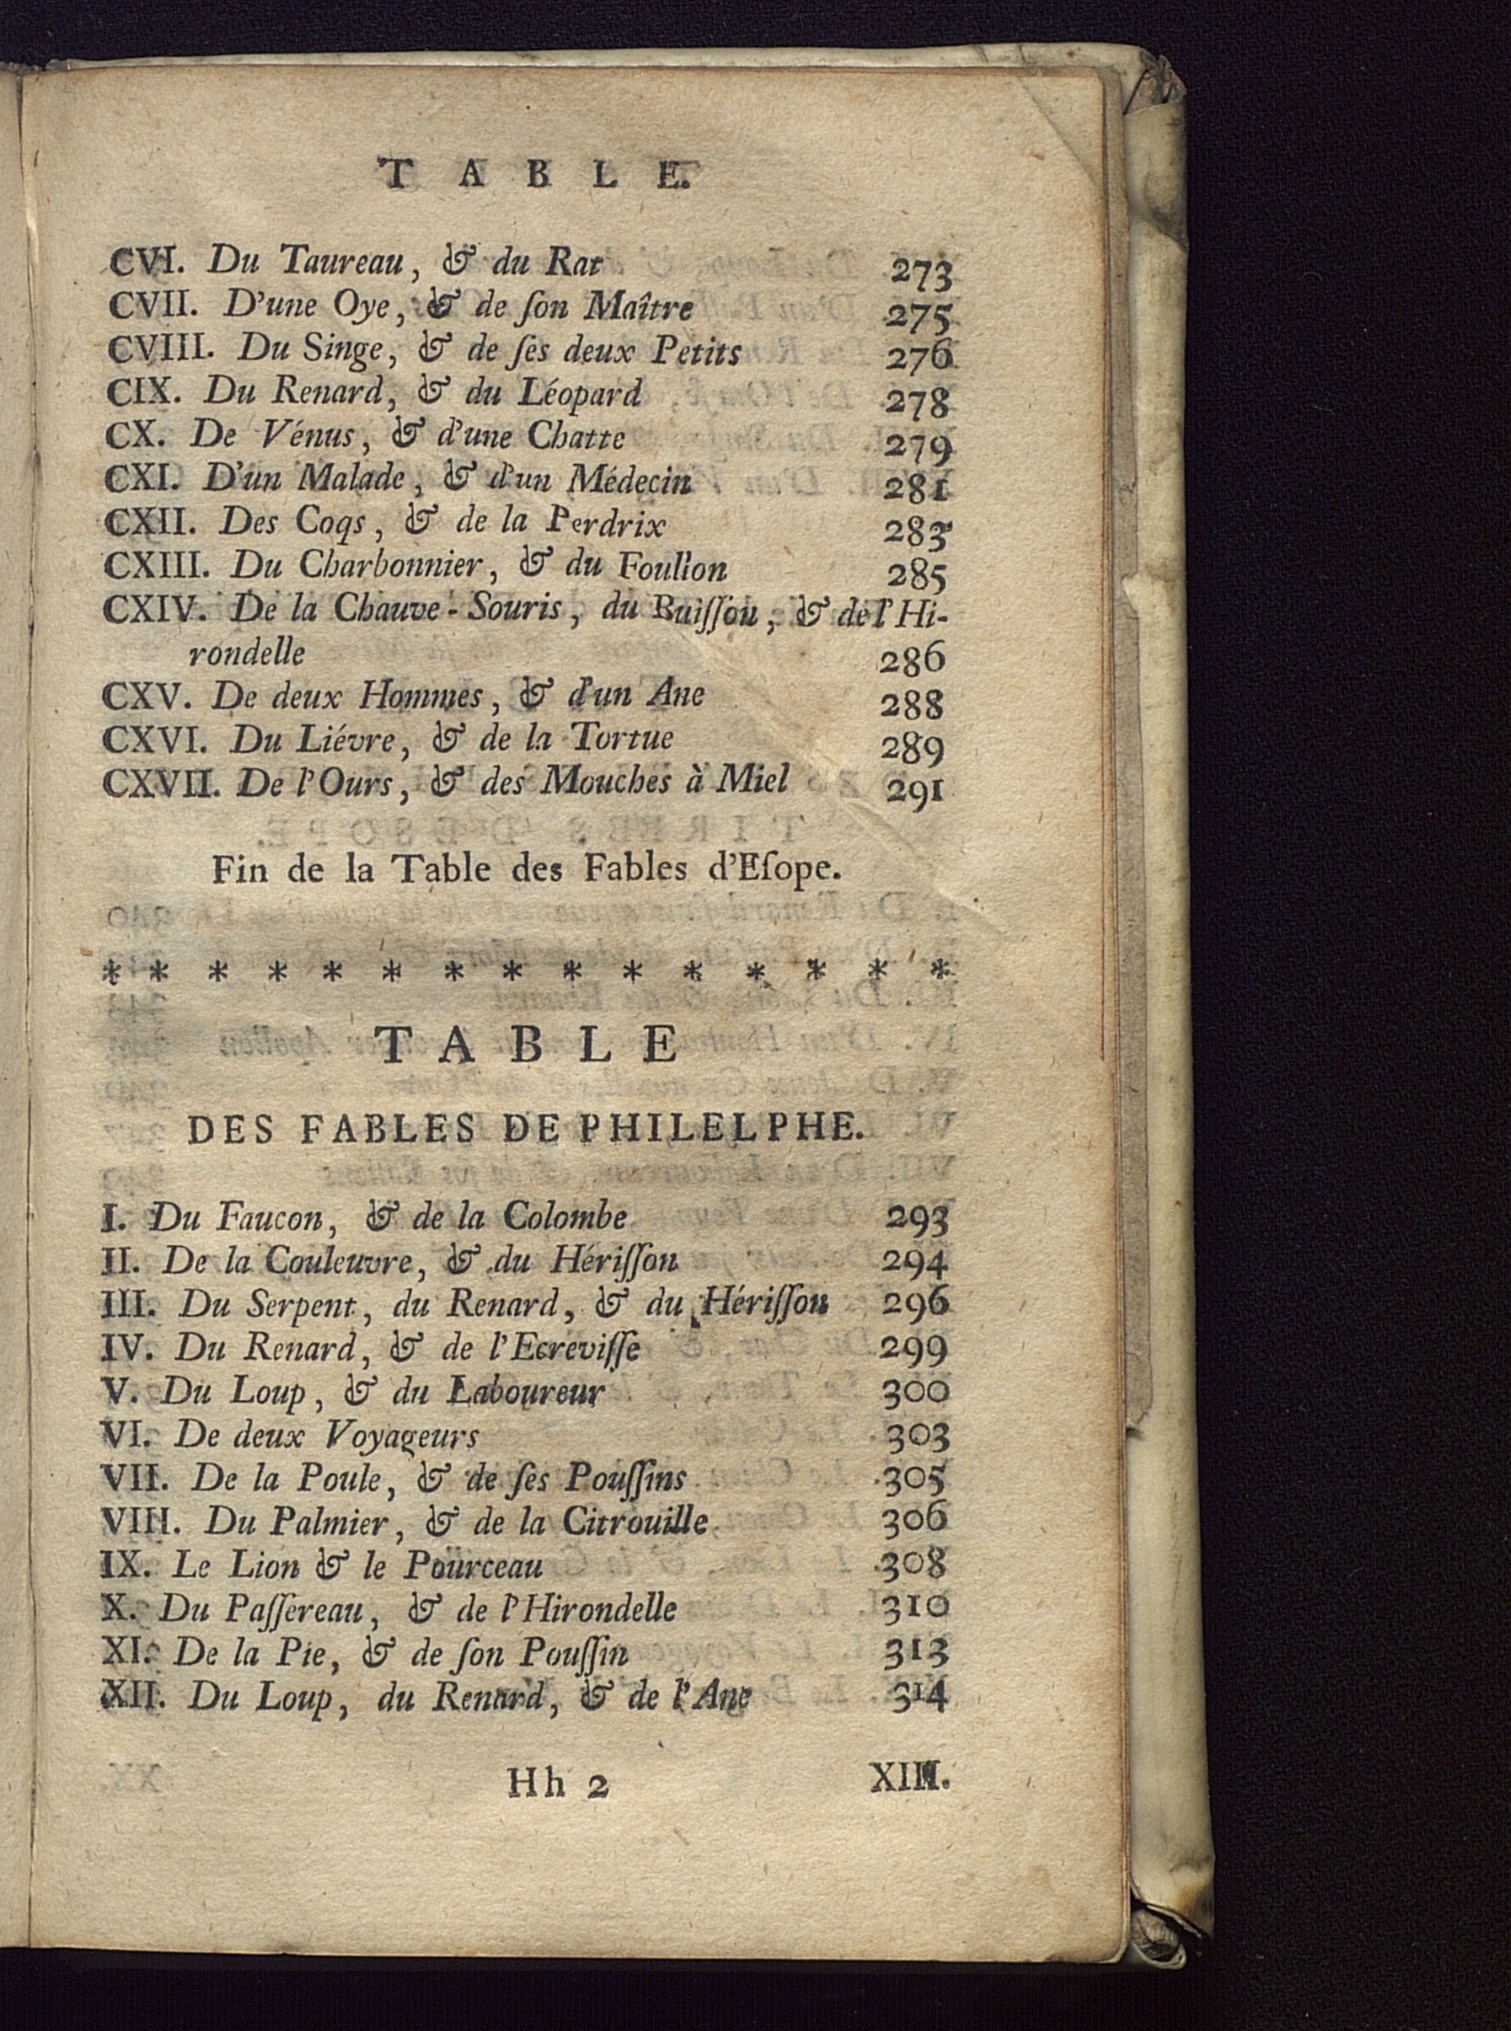 TABLE.
CVI. Du Taureau, & du Rat 273
CVII. D'une Oye, & de ſon Maître 275
CVIII. Du Singe, & de ſes deux Petits 276
CIX. Du Renard, & du Léopard 278
CX. De Vénus, & d'une Chatte 279
CXI. D'un Malade, & d'un Médecin 281
CXII. Des Coqs, & de la Perdrix 283
CXIII. Du Charbonnier, & du Foullon 285
CXIV. De la Chauve-Souris, du Buiſſon, & de l'Hi-
rondelle 286
CXV. De deux Hommes, & d'un Ane 288
CXVI. Du Liévre, & de la Tortue 289
CXVII. De l'Ours, & des Mouches à Miel 291
Fin de la Table des Fables d'Eſope.
* * * * * * * * * * * * * * *
TABLE
DES FABLES DE PHILELPHE.
I. Du Faucon, & de la Colombe 293
II. De la Couleuvre, & du Hériſſon 294
III. Du Serpent, du Renard, & du Hériſſon 296
IV. Du Renard, & de l'Ecreviſſe 299
V. Du Loup, & du Laboureur 300
VI. De deux Voyageurs 303
VII. De la Poule, & de ſes Pouſſins 305
VIII. Du Palmier, & de la Citrouille 306
IX. Le Lion & le Pourceau 308
X. Du Paſſereau, & de l'Hirondelle 310
XI. De la Pie, & de ſon Pouſſin 313
XII. Du Loup, du Renard, & de l'Ane 314
Hh 2 XIII.